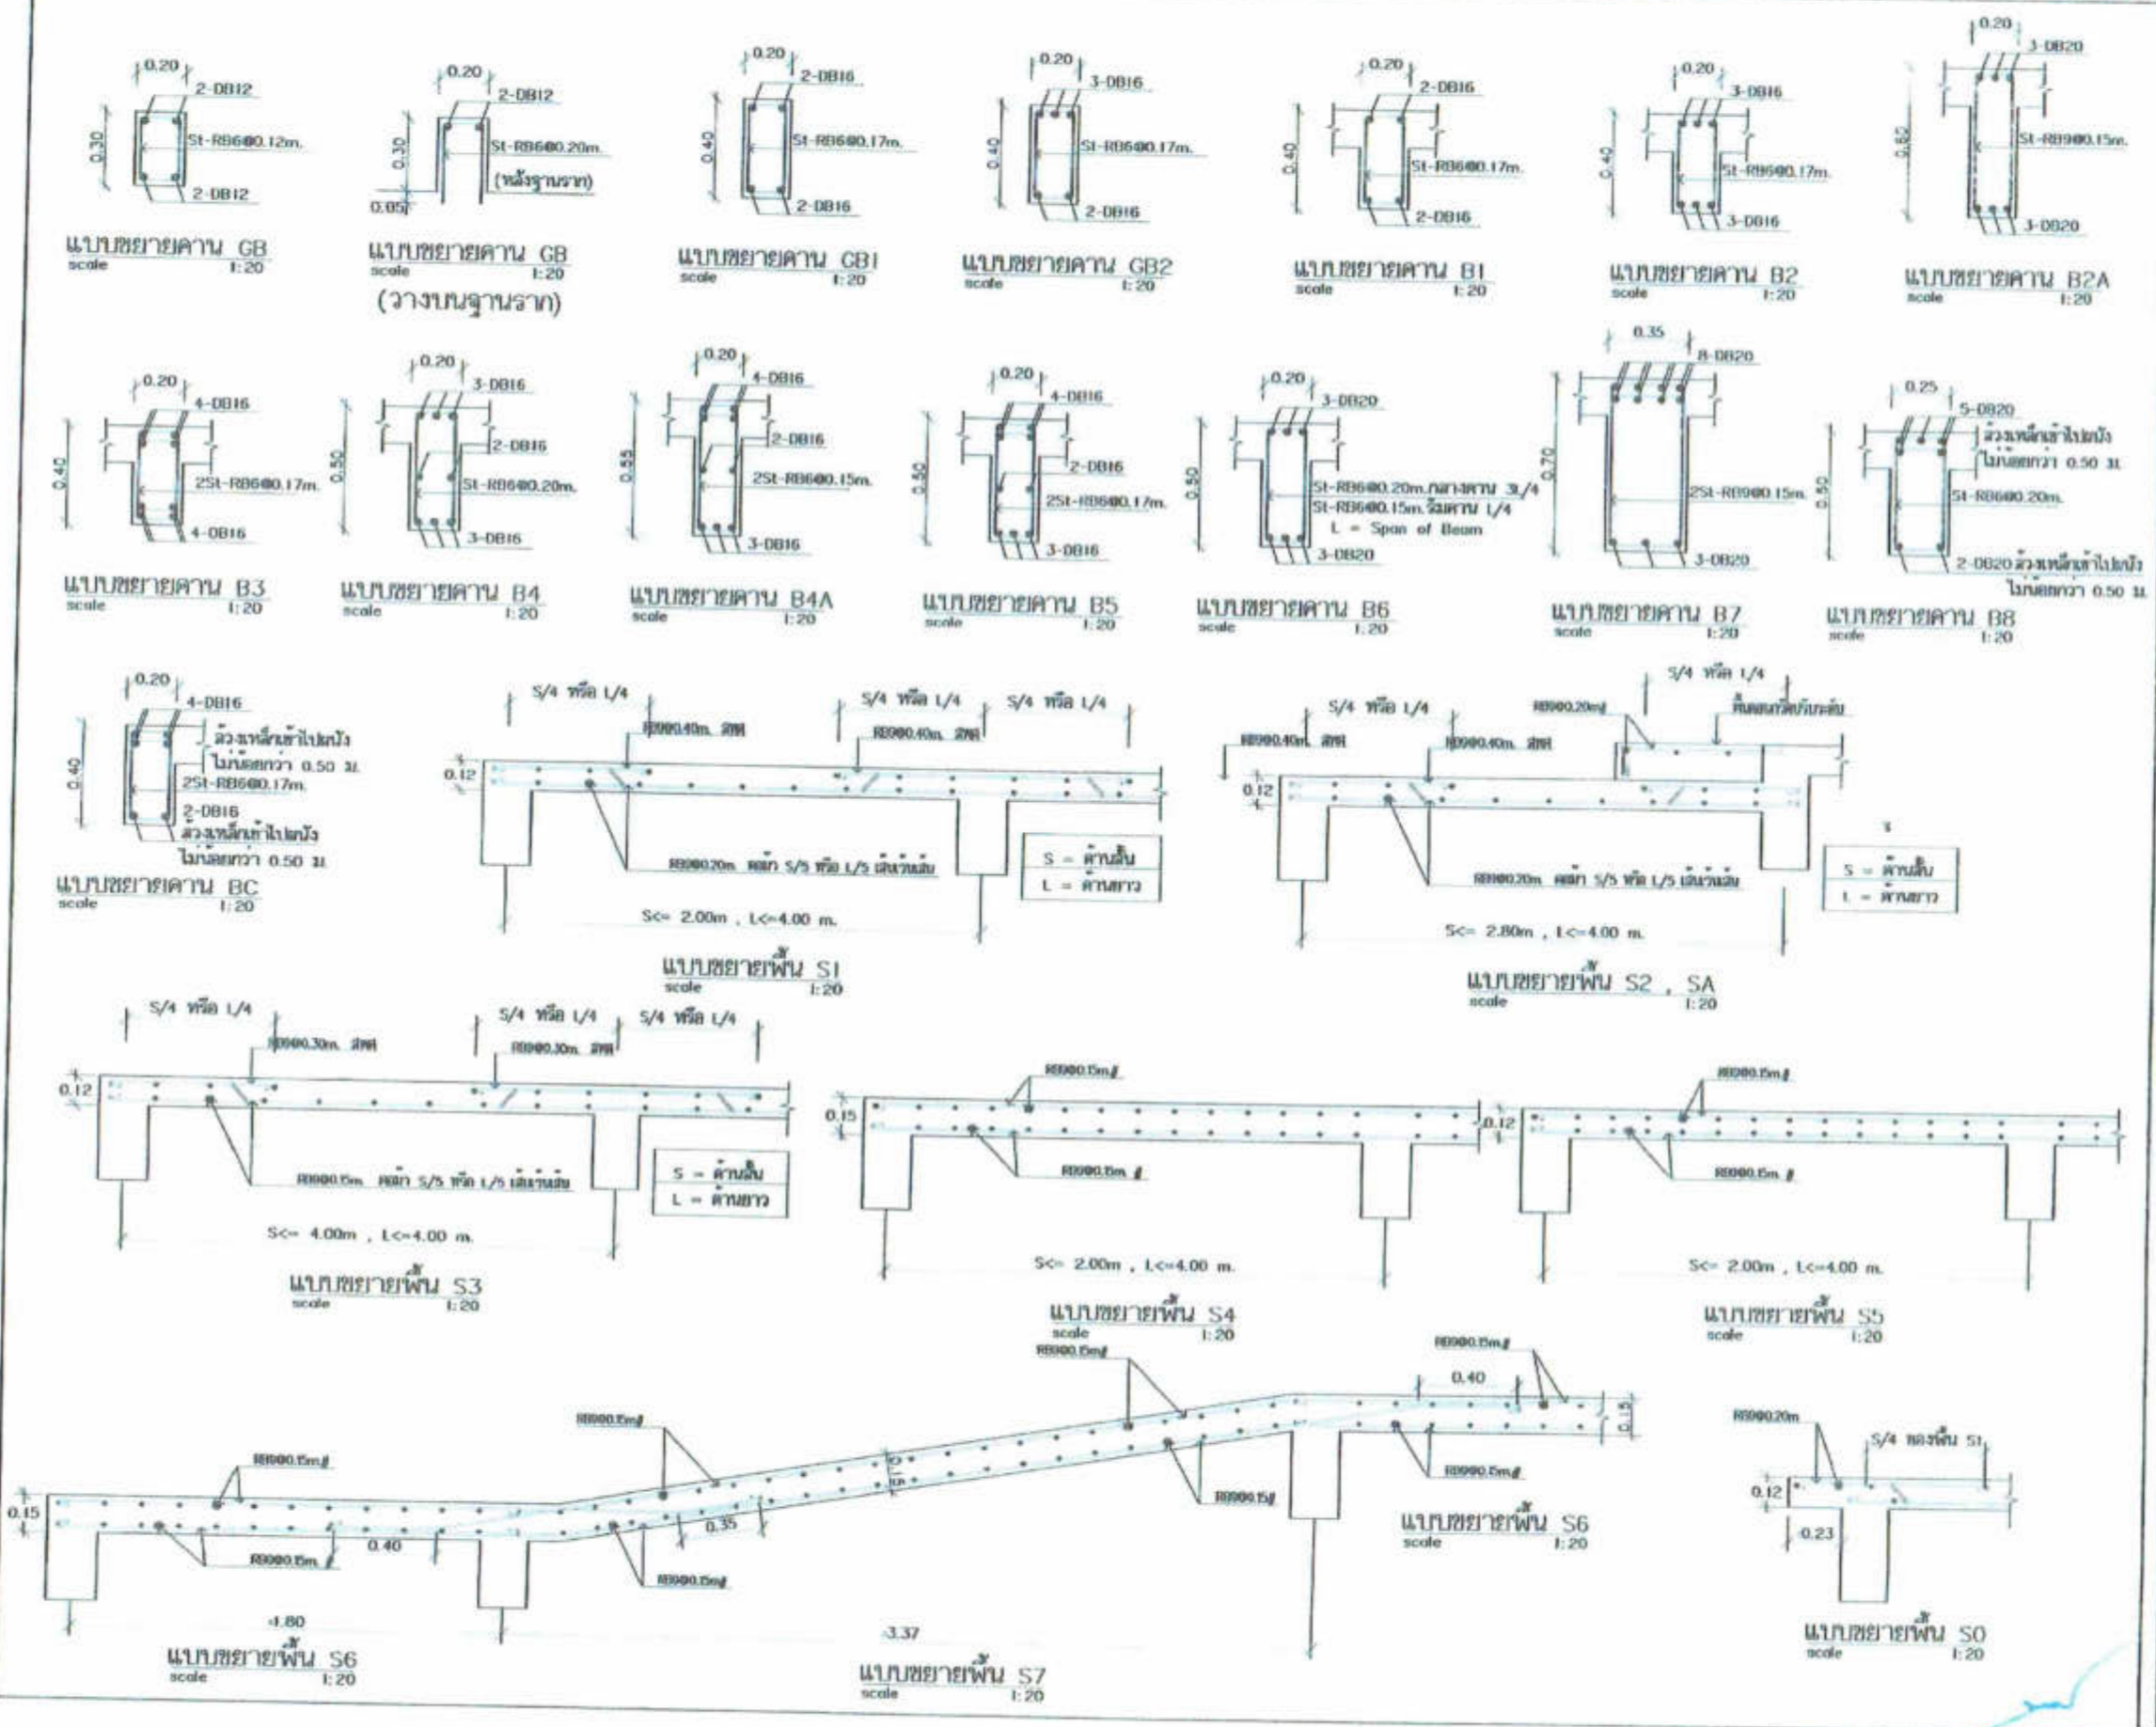 0.20
2-DB12
0.30
St-RB6@0.12m.
2-DB12
แบบขยายคาน GB
scale 1:20
0.20
2-DB12
0.30
St-RB6@0.20m.
(หลังฐานราก)
0.05
แบบขยายคาน GB
scale 1:20
(วางบนฐานราก)
0.20
2-DB16
0.40
St-RB6@0.17m.
2-DB16
แบบขยายคาน GB1
scale 1:20
0.20
3-DB16
0.40
St-RB6@0.17m.
2-DB16
แบบขยายคาน GB2
scale 1:20
0.20
2-DB16
0.40
St-RB6@0.17m.
2-DB16
แบบขยายคาน B1
scale 1:20
0.20
3-DB16
0.40
St-RB6@0.17m.
3-DB16
แบบขยายคาน B2
scale 1:20
0.20
3-DB20
0.60
St-RB9@0.15m.
3-DB20
แบบขยายคาน B2A
scale 1:20
0.20
4-DB16
0.40
2St-RB6@0.17m.
4-DB16
แบบขยายคาน B3
scale 1:20
0.20
3-DB16
0.50
2-DB16
St-RB6@0.20m.
3-DB16
แบบขยายคาน B4
scale 1:20
0.20
4-DB16
0.55
2-DB16
2St-RB6@0.15m.
3-DB16
แบบขยายคาน B4A
scale 1:20
0.20
4-DB16
0.50
2-DB16
2St-RB6@0.17m.
3-DB16
แบบขยายคาน B5
scale 1:20
0.20
3-DB20
0.50
St-RB6@0.20m.กลางคาน 3L/4
St-RB6@0.15m.ริมคาน L/4
L = Span of Beam
3-DB20
แบบขยายคาน B6
scale 1:20
0.35
8-DB20
0.70
2St-RB9@0.15m.
3-DB20
แบบขยายคาน B7
scale 1:20
0.25
5-DB20
ล้วงเหล็กเข้าไปผนัง
ไม่น้อยกว่า 0.50 ม.
0.50
St-RB6@0.20m.
2-DB20 ล้วงเหล็กเข้าไปผนัง
ไม่น้อยกว่า 0.50 ม.
แบบขยายคาน B8
scale 1:20
0.20
4-DB16
ล้วงเหล็กเข้าไปผนัง
ไม่น้อยกว่า 0.50 ม.
0.40
2St-RB6@0.17m.
2-DB16
ล้วงเหล็กเข้าไปผนัง
ไม่น้อยกว่า 0.50 ม.
แบบขยายคาน BC
scale 1:20
S/4 หรือ L/4
S/4 หรือ L/4
S/4 หรือ L/4
RB9@0.40m.
RB9@0.40m.
0.12
RB9@0.20m. คอม้า S/5 หรือ L/5 เส้นเว้นเส้น
S = ด้านสั้น
L = ด้านยาว
S<= 2.00m , L<=4.00 m.
แบบขยายพื้น S1
scale 1:20
S/4 หรือ L/4
S/4 หรือ L/4
RB9@0.20m#
พื้นคอนกรีตปรับระดับ
RB9@0.40m.
RB9@0.40m.
0.12
RB9@0.20m. คอม้า S/5 หรือ L/5 เส้นเว้นเส้น
S = ด้านสั้น
L = ด้านยาว
S<= 2.80m , L<=4.00 m.
แบบขยายพื้น S2 , SA
scale 1:20
S/4 หรือ L/4
S/4 หรือ L/4
S/4 หรือ L/4
RB9@0.30m.
RB9@0.30m.
0.12
RB9@0.15m. คอม้า S/5 หรือ L/5 เส้นเว้นเส้น
S = ด้านสั้น
L = ด้านยาว
S<= 4.00m , L<=4.00 m.
แบบขยายพื้น S3
scale 1:20
RB9@0.15m.#
0.15
RB9@0.15m. #
S<= 2.00m , L<=4.00 m.
แบบขยายพื้น S4
scale 1:20
RB9@0.15m.#
0.12
RB9@0.15m. #
S<= 2.00m , L<=4.00 m.
แบบขยายพื้น S5
scale 1:20
RB9@0.15m.#
0.15
RB9@0.15m. #
0.40
1.80
แบบขยายพื้น S6
scale 1:20
RB9@0.15m#
RB9@0.15m#
0.15
0.35
RB9@0.15m#
RB9@0.15#
3.37
แบบขยายพื้น S7
scale 1:20
RB9@0.15m.#
0.40
0.15
RB9@0.15m.#
แบบขยายพื้น S6
scale 1:20
RB9@0.20m
S/4 ของพื้น S1
0.12
0.23
แบบขยายพื้น S0
scale 1:20